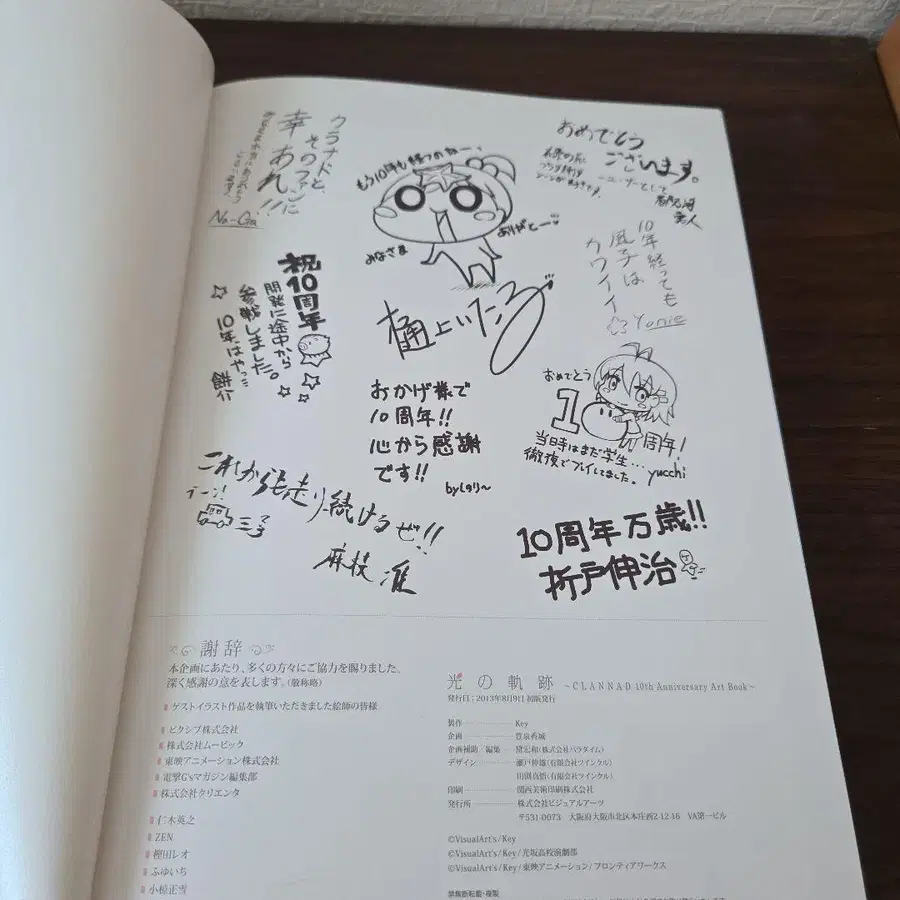 クラナドと、
そのファンに
幸あれ!!
Na-Ga
もう10年も経つのねー、
みなさま
ありがとー
樋上いたる
おめでとう
ございます。
ユーザーとして
10年経っても
風子は
カワイイ
Yonie
祝10周年
開発に途中から
参戦しました。
10年はやっ…
餅介
おかげ様で
10周年!!
心から感謝
です!!
byしのり〜
おめでとう
10周年!
当日時はまだ学生…
徹夜でプレイしてました。
yucchi
これからも走り続けるぜ!!
麻枝 准
10周年万歳!!
折戸伸治
謝辞
本企画にあたり、多くの方々にご協力を賜りました。
深く感謝の意を表します。(敬称略)
ゲストイラスト作品を執筆いただきました絵師の皆様
ピクシブ株式会社
株式会社ムービック
東映アニメーション株式会社
電撃G'sマガジン編集部
株式会社クリエンタ
仁木英之
ZEN
樫田レオ
ふゆいち
小椋正雪
光の軌跡 ～CLANNAD 10th Anniversary Art Book～
発行日:2013年8月9日 初版発行
製作 Key
企画
企画補助/編集 (株式会社パラタイム)
デザイン 瀬戸伸雄(有限会社ツインクル)
(有限会社ツインクル)
印刷 関西美術印刷株式会社
発行所 株式会社ビジュアルアーツ
〒531-0073 大阪府大阪市北区本庄西2-12-16 VA第一ビル
©VisualArt's/Key
©VisualArt's/Key/光坂高校演劇部
©VisualArt's/Key/東映アニメーション/フロンティアワークス
禁無断転載・複製